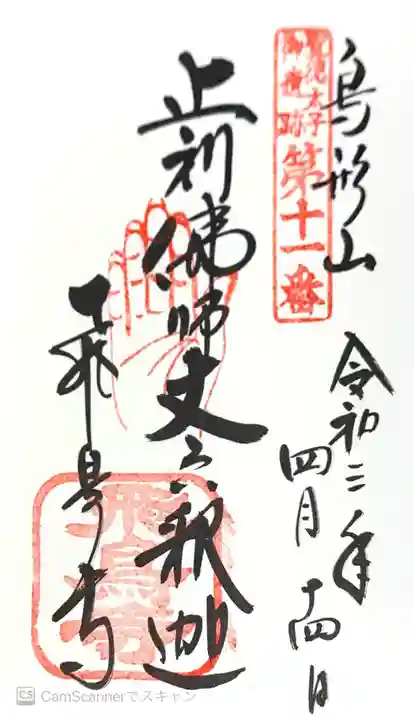 鳥形山
令和三年
四月十四日
聖徳太子
御遺跡
第十一番
止利佛師丈六釈迦
飛鳥寺
飛鳥寺
CS CamScannerでスキャン